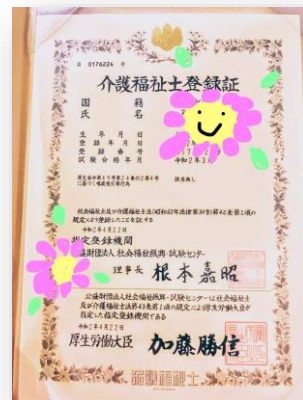 第 0176224 号
介護福祉士登録証
国 籍
氏 名
生 年 月 日
登 録 年 月 日
登 録 番 号
試験合格年月 令和2年3月
社会福祉士及び介護福祉士法(昭和62年法律第30号)第42条第1項の
規定により登録したことを証する
令和2年4月22日
指定登録機関
公益財団法人 社会福祉振興・試験センター
理事長 根本嘉昭
公益財団法人社会福祉振興・試験センターは社会福祉士
及び介護福祉士法第43条第1項の規定により厚生労働大臣が
指定した指定登録機関である
令和2年4月22日
厚生労働大臣 加藤勝信